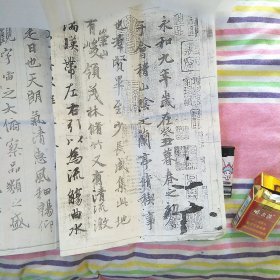 永和九年歲在癸丑暮春之初
于會稽山陰之蘭亭脩稧事
也羣賢畢至少長咸集此地
有崇山峻領茂林脩竹又有清流激
湍暎帶左右引以為流觴曲水
是日也天朗氣清惠風和暢仰
觀宇宙之大俯察品類之盛